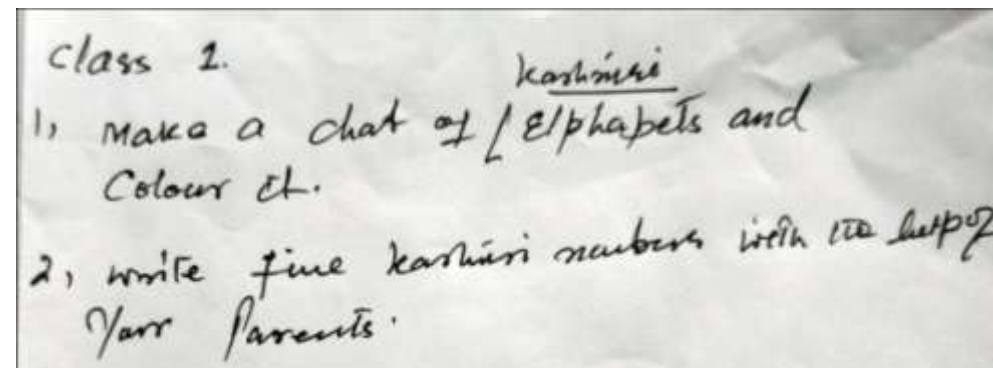 Class 1.
Kashmiri
1, Make a chat of [ Elphapets and
Colour it.
2, write five Kashmiri numbers with the help of
Your Parents.